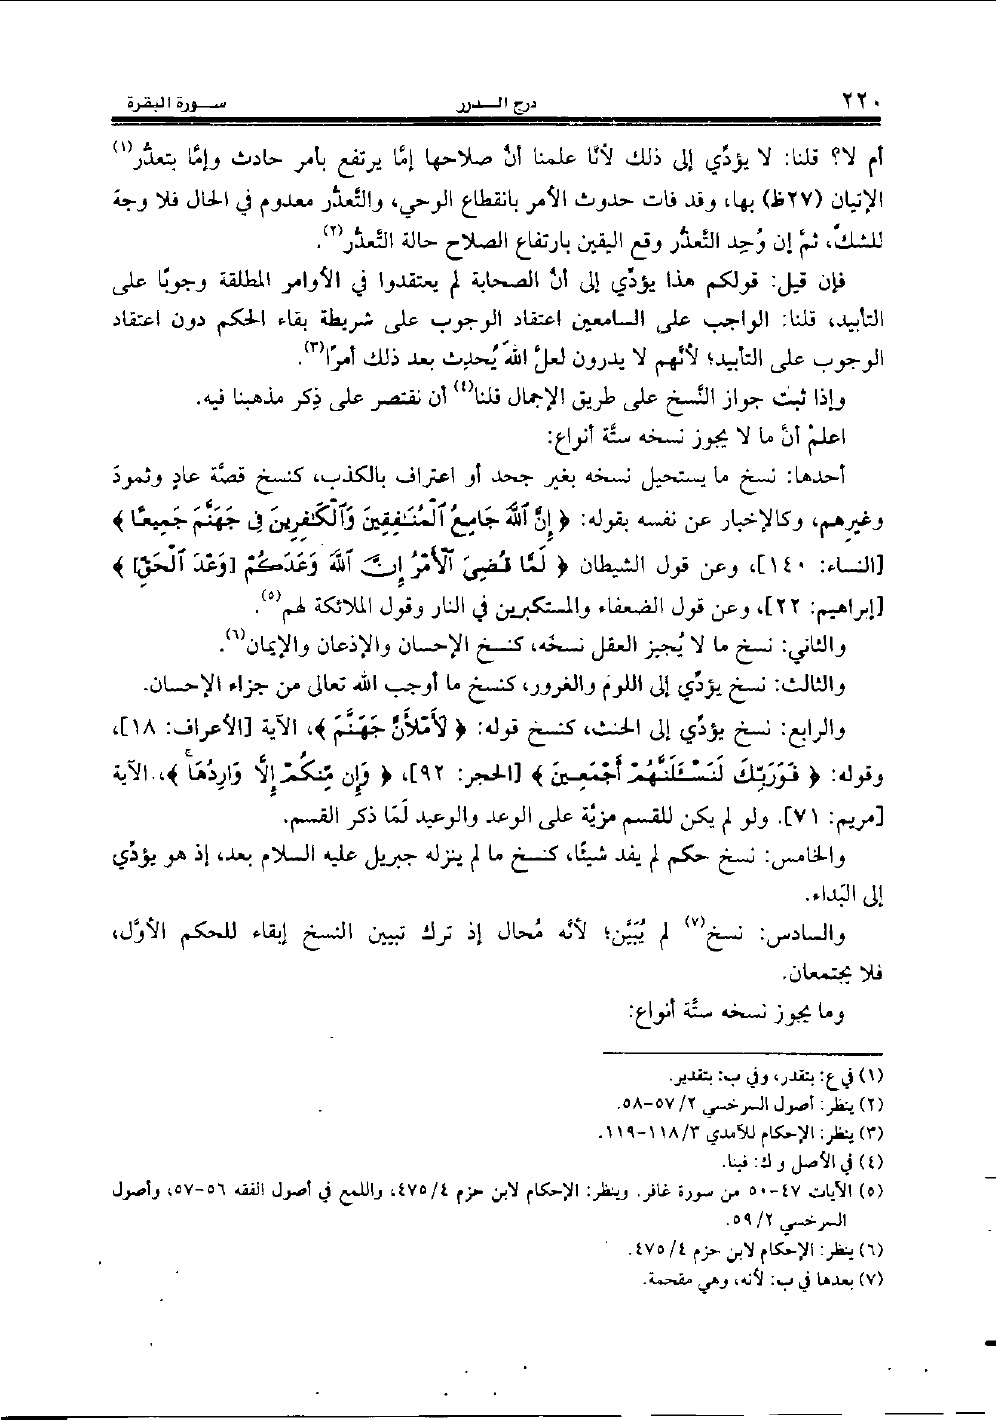 ٢٢٠ درج الـــدرر ســـورة البقرة
أم لا؟ قلنا: لا يؤدِّي إلى ذلك لأنَّا علمنا أنَّ صلاحها إمَّا يرتفع بأمر حادث وإمَّا بتعذُّر(١)
الإتيان (٢٧ظ) بها، وقد فات حدوث الأمر بانقطاع الوحي، والتَّعذُّر معدوم في الحال فلا وجهَ
للشكِّ، ثمَّ إن وُجِد التَّعذُّر وقع اليقين بارتفاع الصلاح حالة التَّعذُّر(٢).
فإن قيل: قولكم هذا يؤدِّي إلى أنَّ الصحابة لم يعتقدوا في الأوامر المطلقة وجوبًا على
التأبيد، قلنا: الواجب على السامعين اعتقاد الوجوب على شريطة بقاء الحكم دون اعتقاد
الوجوب على التأبيد؛ لأنَّهم لا يدرون لعلَّ اللهَ يُحدِث بعد ذلك أمرًا(٣).
وإذا ثبت جواز النَّسخ على طريق الإجمال قلنا(٤) أن نقتصر على ذِكر مذهبنا فيه.
اعلمْ أنَّ ما لا يجوز نسخه ستَّة أنواع:
أحدها: نسخ ما يستحيل نسخه بغير جحد أو اعتراف بالكذب، كنسخ قصَّة عادٍ وثمودَ
وغيرهم، وكالإخبار عن نفسه بقوله: ﴿ إِنَّ ٱللَّهَ جَامِعُ ٱلْمُنَٰفِقِينَ وَٱلْكَٰفِرِينَ فِى جَهَنَّمَ جَمِيعًا ﴾
[النساء: ١٤٠]، وعن قول الشيطان ﴿ لَمَّا قُضِىَ ٱلْأَمْرُ إِنَّ ٱللَّهَ وَعَدَكُمْ [وَعْدَ ٱلْحَقِّ] ﴾
[إبراهيم: ٢٢]، وعن قول الضعفاء والمستكبرين في النار وقول الملائكة لهم(٥).
والثاني: نسخ ما لا يُجيز العقل نسخَه، كنسخ الإحسان والإذعان والإيمان(٦).
والثالث: نسخ يؤدِّي إلى اللوم والغرور، كنسخ ما أوجب الله تعالى من جزاء الإحسان.
والرابع: نسخ يؤدِّي إلى الحنث، كنسخ قوله: ﴿ لَأَمْلَأَنَّ جَهَنَّمَ ﴾، الآية [الأعراف: ١٨]،
وقوله: ﴿ فَوَرَبِّكَ لَنَسْـَٔلَنَّهُمْ أَجْمَعِينَ ﴾ [الحجر: ٩٢]، ﴿ وَإِن مِّنكُمْ إِلَّا وَارِدُهَا ۚ ﴾، الآية
[مريم: ٧١]. ولو لم يكن للقسم مزيَّة على الوعد والوعيد لَمَا ذكر القسم.
والخامس: نسخ حكم لم يفد شيئًا، كنسخ ما لم ينزله جبريل عليه السلام بعد، إذ هو يؤدِّي
إلى البَداء.
والسادس: نسخ(٧) لم يُبَيَّن؛ لأنَّه مُحال إذ ترك تبيين النسخ إبقاء للحكم الأوَّل،
فلا يجتمعان.
وما يجوز نسخه ستَّة أنواع:
(١) في ع: بتقدر، وفي ب: بتقدير.
(٢) ينظر: أصول السرخسي ٢/ ٥٧-٥٨.
(٣) ينظر: الإحكام للآمدي ٣/ ١١٨-١١٩.
(٤) في الأصل و ك: فينا.
(٥) الآيات ٤٧-٥٠ من سورة غافر. وينظر: الإحكام لابن حزم ٤/ ٤٧٥، واللمع في أصول الفقه ٥٦-٥٧، وأصول
السرخسي ٢/ ٥٩.
(٦) ينظر: الإحكام لابن حزم ٤/ ٤٧٥.
(٧) بعدها في ب: لأنه، وهي مقحمة.